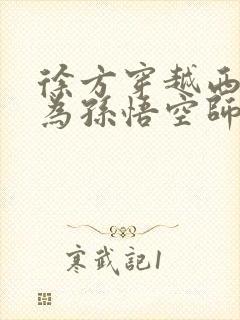 徐方穿越西
為孫悟空師
寒武記1